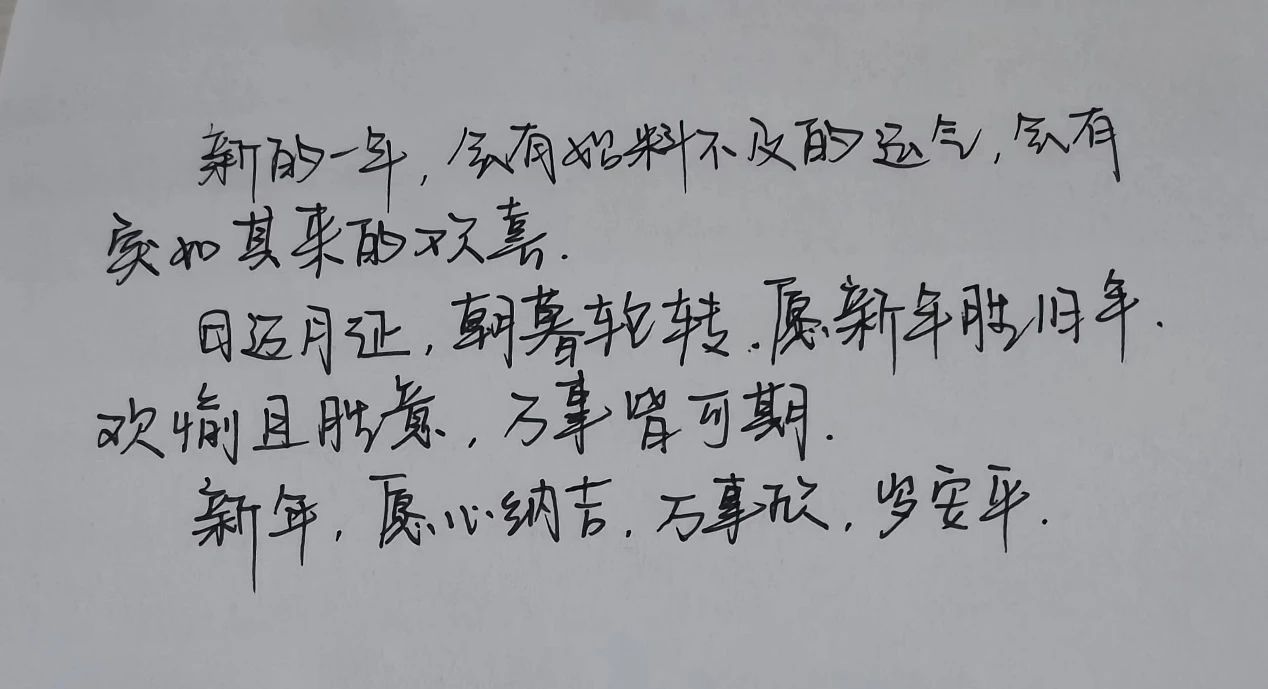 新的一年，会有始料不及的运气，会有
突如其来的欢喜.
日迈月征，朝暮轮转.愿新年胜旧年.
欢愉且胜意，万事皆可期.
新年，愿心纳吉.万事欣，岁安平.